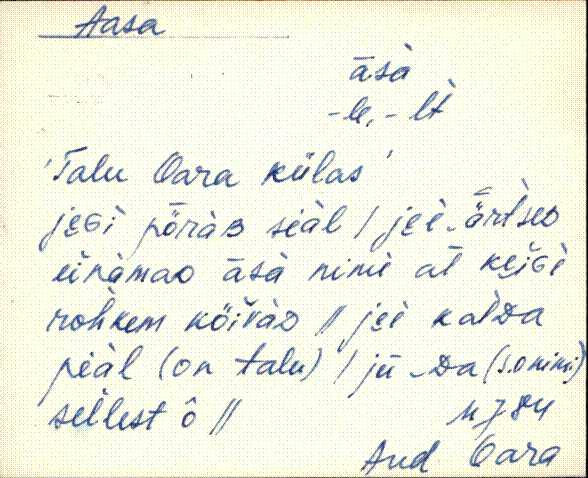 Aasa
āsà
-le, -lt
'Talu Oara külas'
jεGi pȫràʙ siäl / jẹi-ǟrtseᴅ
einämaᴅ āsà nimi at kẹiGi
rohkem kȫivàᴅ // jẹi kalda
piäl (on talu) / jü-ᴅa (s.o nimi)
sellest ô //
Aud Oara